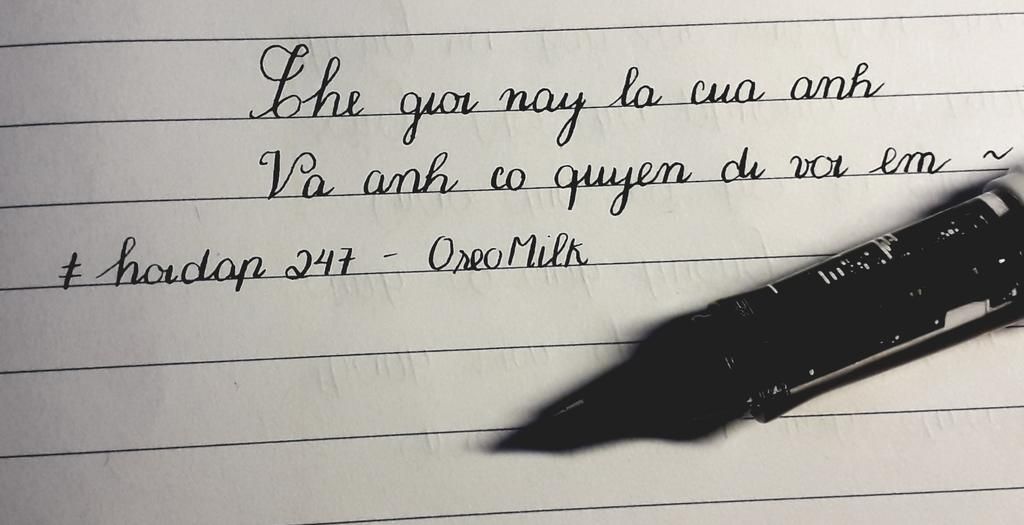 The gioi nay la cua anh
Va anh co quyen di voi em ~
# hoidap 247 - OreoMilk